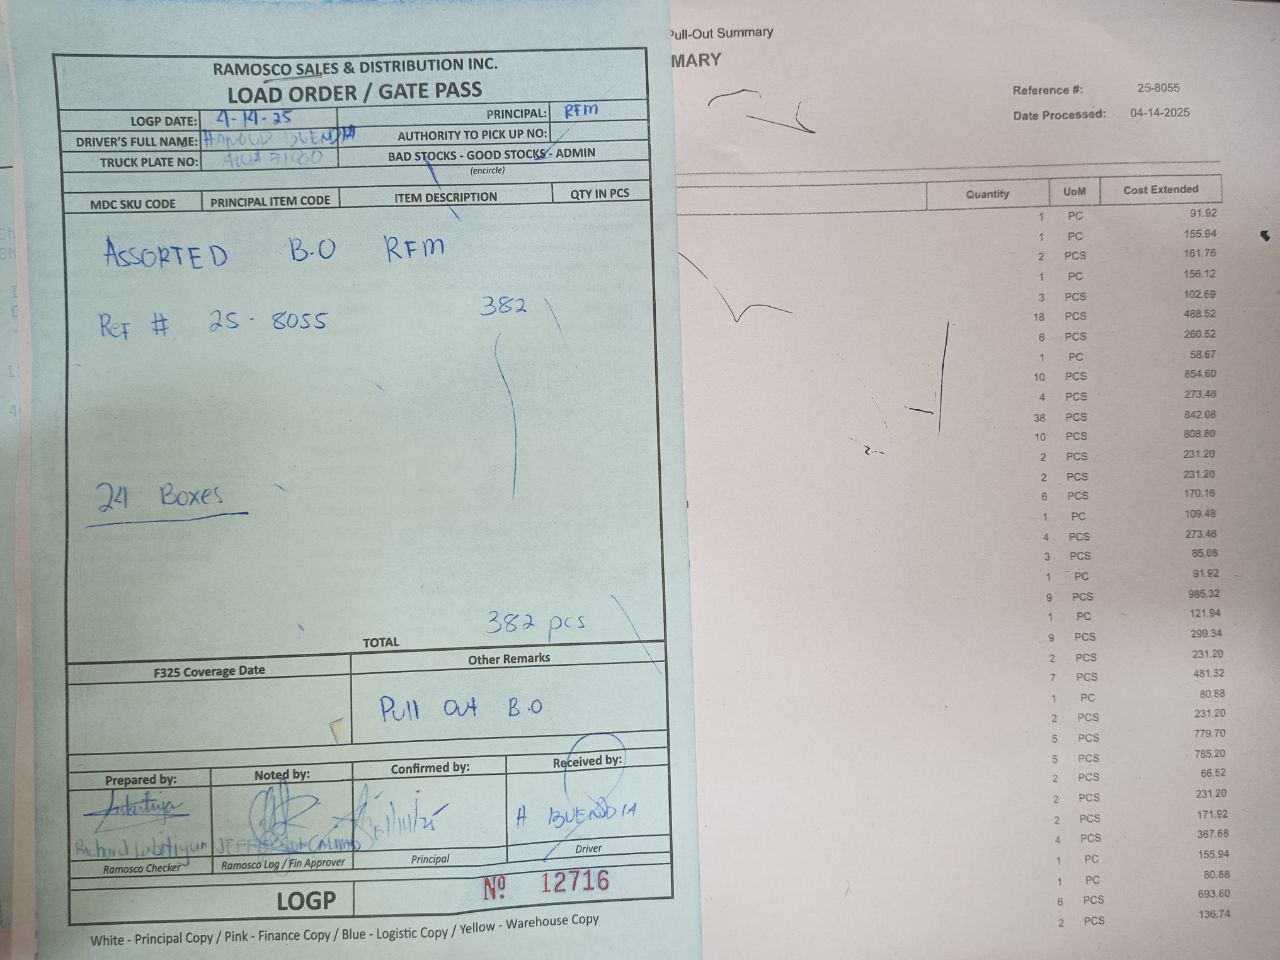 RAMOSCO SALES & DISTRIBUTION INC.
LOAD ORDER / GATE PASS
LOGP DATE: 4-14-25 PRINCIPAL: RFM
DRIVER'S FULL NAME: HAROLD BUENDIA AUTHORITY TO PICK UP NO:
TRUCK PLATE NO: BAD STOCKS - GOOD STOCKS - ADMIN
(encircle)
MDC SKU CODE PRINCIPAL ITEM CODE ITEM DESCRIPTION QTY IN PCS
ASSORTED B.O RFM
382
REF # 25-8055
24 Boxes
382 pcs
TOTAL
F325 Coverage Date Other Remarks
Pull Out B.O
Prepared by: Noted by: Confirmed by: Received by:
H BUENDIA
Ramosco Checker Ramosco Log / Fin Approver Principal Driver
LOGP Nº 12716
White - Principal Copy / Pink - Finance Copy / Blue - Logistic Copy / Yellow - Warehouse Copy
Pull-Out Summary
MARY
Reference #: 25-8055
Date Processed: 04-14-2025
Quantity UoM Cost Extended
1 PC 91.92
1 PC 155.94
2 PCS 161.76
1 PC 156.12
3 PCS 102.69
18 PCS 488.52
6 PCS 260.52
1 PC 58.67
10 PCS 854.60
4 PCS 273.48
38 PCS 842.08
10 PCS 808.80
2 PCS 231.20
2 PCS 231.20
6 PCS 170.16
1 PC 109.48
4 PCS 273.48
3 PCS 85.08
1 PC 91.92
9 PCS 985.32
1 PC 121.94
9 PCS 299.34
2 PCS 231.20
7 PCS 481.32
1 PC 80.88
2 PCS 231.20
5 PCS 779.70
5 PCS 785.20
2 PCS 66.52
2 PCS 231.20
2 PCS 171.92
4 PCS 367.68
1 PC 155.94
1 PC 80.88
6 PCS 693.60
2 PCS 136.74